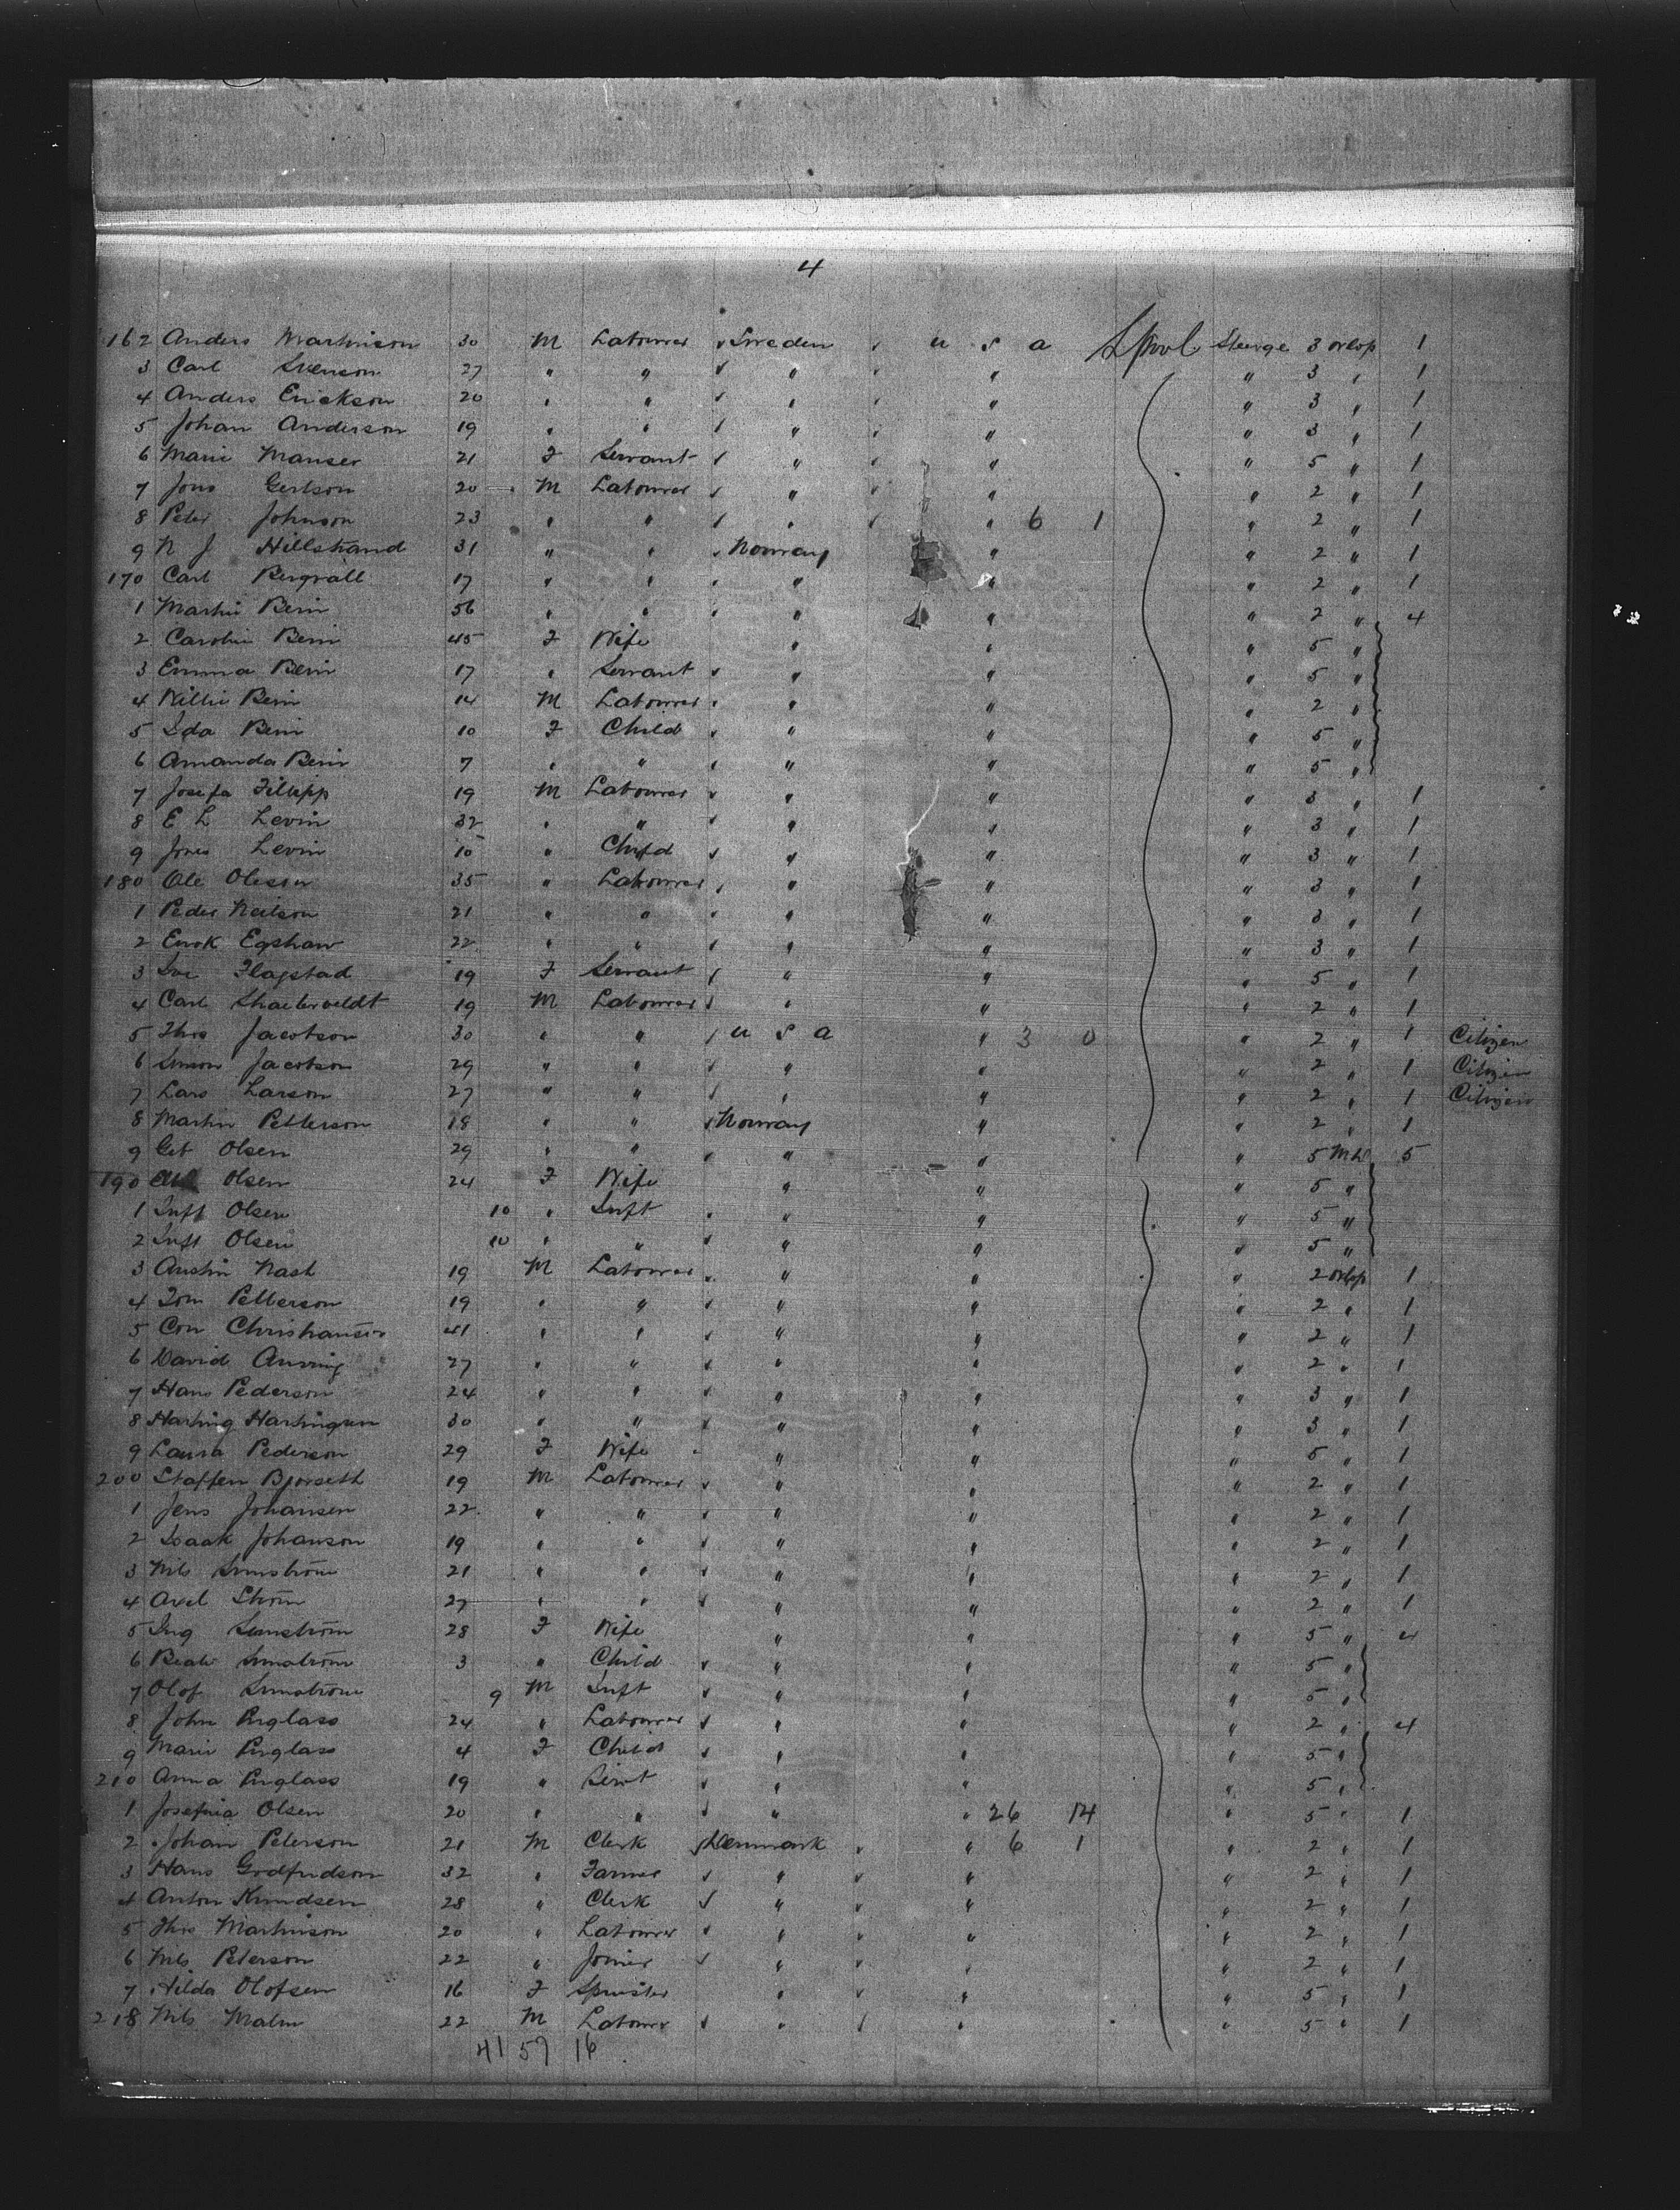 4
162 Anders Martinson 30 M Labourer Sweden U S A Lpool Steerge 3 orlop 1
3 Carl Svenson 27 " " " " " 3 " 1
4 Anders Erickson 20 " " " " " 3 " 1
5 Johan Anderson 19 " " " " " 3 " 1
6 Marie Manser 21 F Servant " " " 5 " 1
7 Jons Gertson 20 M Labourer " " " 2 " 1
8 Peter Johnson 23 " " " " 6 1 " 2 " 1
9 N J Hillstrand 31 " " Norway " " 2 " 1
170 Carl Bergvall 17 " " " " " 2 " 1
1 Martin Berin 56 " " " " " 2 " 4
2 Carolin Berin 45 F Wife " " " 5 "
3 Emma Berin 17 " Servant " " " 5 "
4 Willie Berin 14 M Labourer " " " 2 "
5 Ida Berin 10 F Child " " " 5 "
6 Amanda Berin 7 " " " " " 5 "
7 Josefa Filipp 19 M Labourer " " " 3 " 1
8 E L Levin 32 " " " " " 3 " 1
9 Jones Levin 10 " Child " " " 3 " 1
180 Ole Olesen 35 " Labourer " " " 3 " 1
1 Peder Neilson 21 " " " " " 3 " 1
2 Enok Egshaw 22 " " " " " 3 " 1
3 Flagstad 19 F Servant " " " 5 " 1
4 Carl 19 M Labourer " " " 2 " 1
5 Thos Jacobson 30 " " U S A " 3 0 " 2 " 1 Citizen
6 Simon Jacobson 29 " " " " " 2 " 1 Citizen
7 Lars Larson 27 " " " " " 2 " 1 Citizen
8 Martin Petterson 18 " " Norway " " 2 " 1
9 Get Olsen 29 " " " " " 5 5
190 Olsen 24 F Wife " " " 5 "
1 Inft Olsen 10 " Inft " " " 5 "
2 Inft Olsen 10 " " " " " 5 "
3 Austin Nash 19 M Labourer " " " 2 orlop 1
4 Tom Petterson 19 " " " " " 2 " 1
5 Con Christiansen 41 " " " " " 2 " 1
6 David 27 " " " " " 2 " 1
7 Hans Pederson 24 " " " " " 3 " 1
8 30 " " " " " 3 " 1
9 Laura Pederson 29 F Wife " " " 5 " 1
200 Staffen Bjorseth 19 M Labourer " " " 2 " 1
1 Jens Johansen 22 " " " " " 2 " 1
2 Isaak Johanson 19 " " " " " 2 " 1
3 Nils Sunström 21 " " " " " 2 " 1
4 Axel Ström 27 " " " " " 2 " 1
5 Ing Sunström 28 F Wife " " " 5 " 4
6 Beate Sunström 3 " Child " " " 5 "
7 Olof Sunström 9 M Inft " " " 5 "
8 John 24 " Labourer " " " 2 " 4
9 Marie 4 F Child " " " 5 "
210 Anna 19 " Servt " " " 5 "
1 Josefina Olsen 20 " " " " 26 14 " 5 " 1
2 Johan Peterson 21 M Clerk Denmark " " 6 1 " 2 " 1
3 Hans Godfredson 32 " Farmer " " " 2 " 1
4 Anton Knudsen 28 " Clerk " " " " 2 " 1
5 Thos Martinson 20 " Labourer " " " " 2 " 1
6 Nils Peterson 22 " Joiner " " " " 2 " 1
7 Hilda Olofsen 16 F Spinster " " " 5 " 1
218 Nils Malm 22 M Labourer " " " 5 " 1
41 57 16